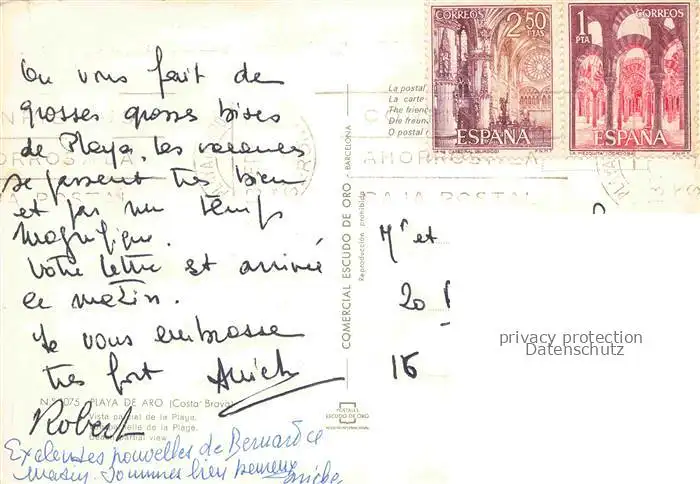 On vous fait de
grosses grosses bises
de Playa, les vacances
se passent très bien
et par un temps
magnifique.
Votre lettre est arrivée
ce matin.
Je vous embrasse
très fort
Robert
Excellentes nouvelles de Bernard ce
matin. Sommes bien heureux
N.º 1075 - PLAYA DE ARO (Costa Brava)
Vista parcial de la Playa.
Vue partielle de la Plage.
Beach partial view
COMERCIAL ESCUDO DE ORO - BARCELONA
Reproducción prohibida
POSTALES
ESCUDO DE ORO
CORREOS 2,50 PTAS
ESPAÑA
1 PTA CORREOS
ESPAÑA
LA MEZQUITA (CORDOBA)
La postal
La carte
The friend
Die freun
O postal
AHORROS LA
CAJA POSTAL
Mr et
20
16
privacy protection
Datenschutz